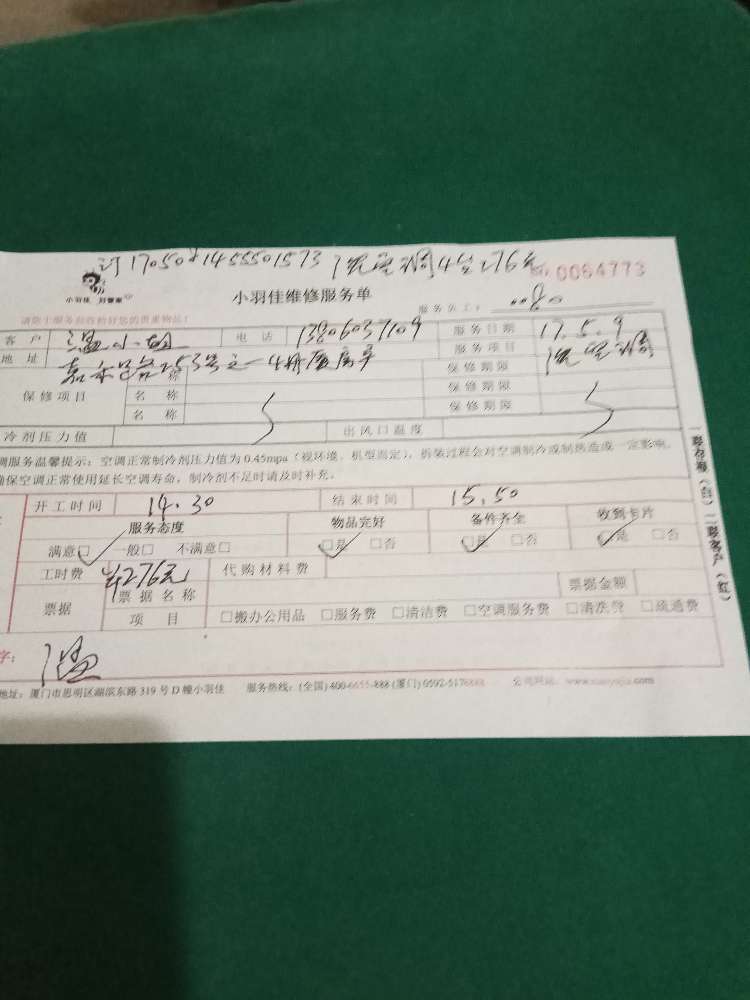 订1705091455501573 1洗空调4台276元
No 0064773
小羽佳 刘管家
小羽佳维修服务单
服务员工: 0080
请您于服务前收拾好您的贵重物品!
客 户 温小姐 电 话 13806037109 服务日期 17.5.9
地 址 服务项目 洗空调
保修项目 名 称 保修期限
名 称 保修期限
名 称 保修期限
冷剂压力值 出风口温度
调服务温馨提示:空调正常制冷剂压力值为 0.45mpa(视环境、机型而定),拆装过程会对空调制冷或制热造成一定影响。
确保空调正常使用延长空调寿命,制冷剂不足时请及时补充。
开工时间 14.30 结束时间 15.50
服务态度 物品完好 备件齐全 收到卡片
满意□ 一般□ 不满意□ □是 □否 □是 □否 □是 □否
工时费 ¥276元 代购材料费
票据 票据名称 票据金额
项 目 □搬办公用品 □服务费 □清洁费 □空调服务费 □清洗费 □疏通费
字: 温
地址:厦门市思明区湖滨东路 319 号 D 幢小羽佳 服务热线:(全国) 400-6655-888 (厦门) 0592-5178888 公司网站:www.xiaoyujia.com
一联存根(白) 二联客户(红)